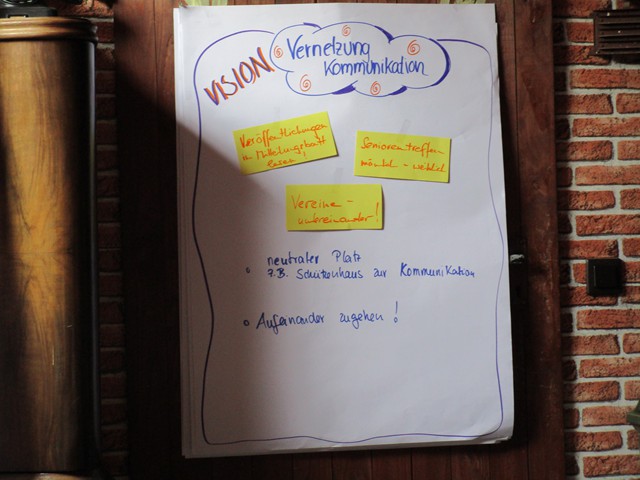 VISION
Vernetzung
Kommunikation
Veröffentlichungen
in Mitteilungsblatt
lesen!
Seniorentreffen
männlich - weiblich
Vereine -
untereinander!
neutraler Platz
z.B. Schützenhaus zur Kommunikation
Aufeinander zugehen!